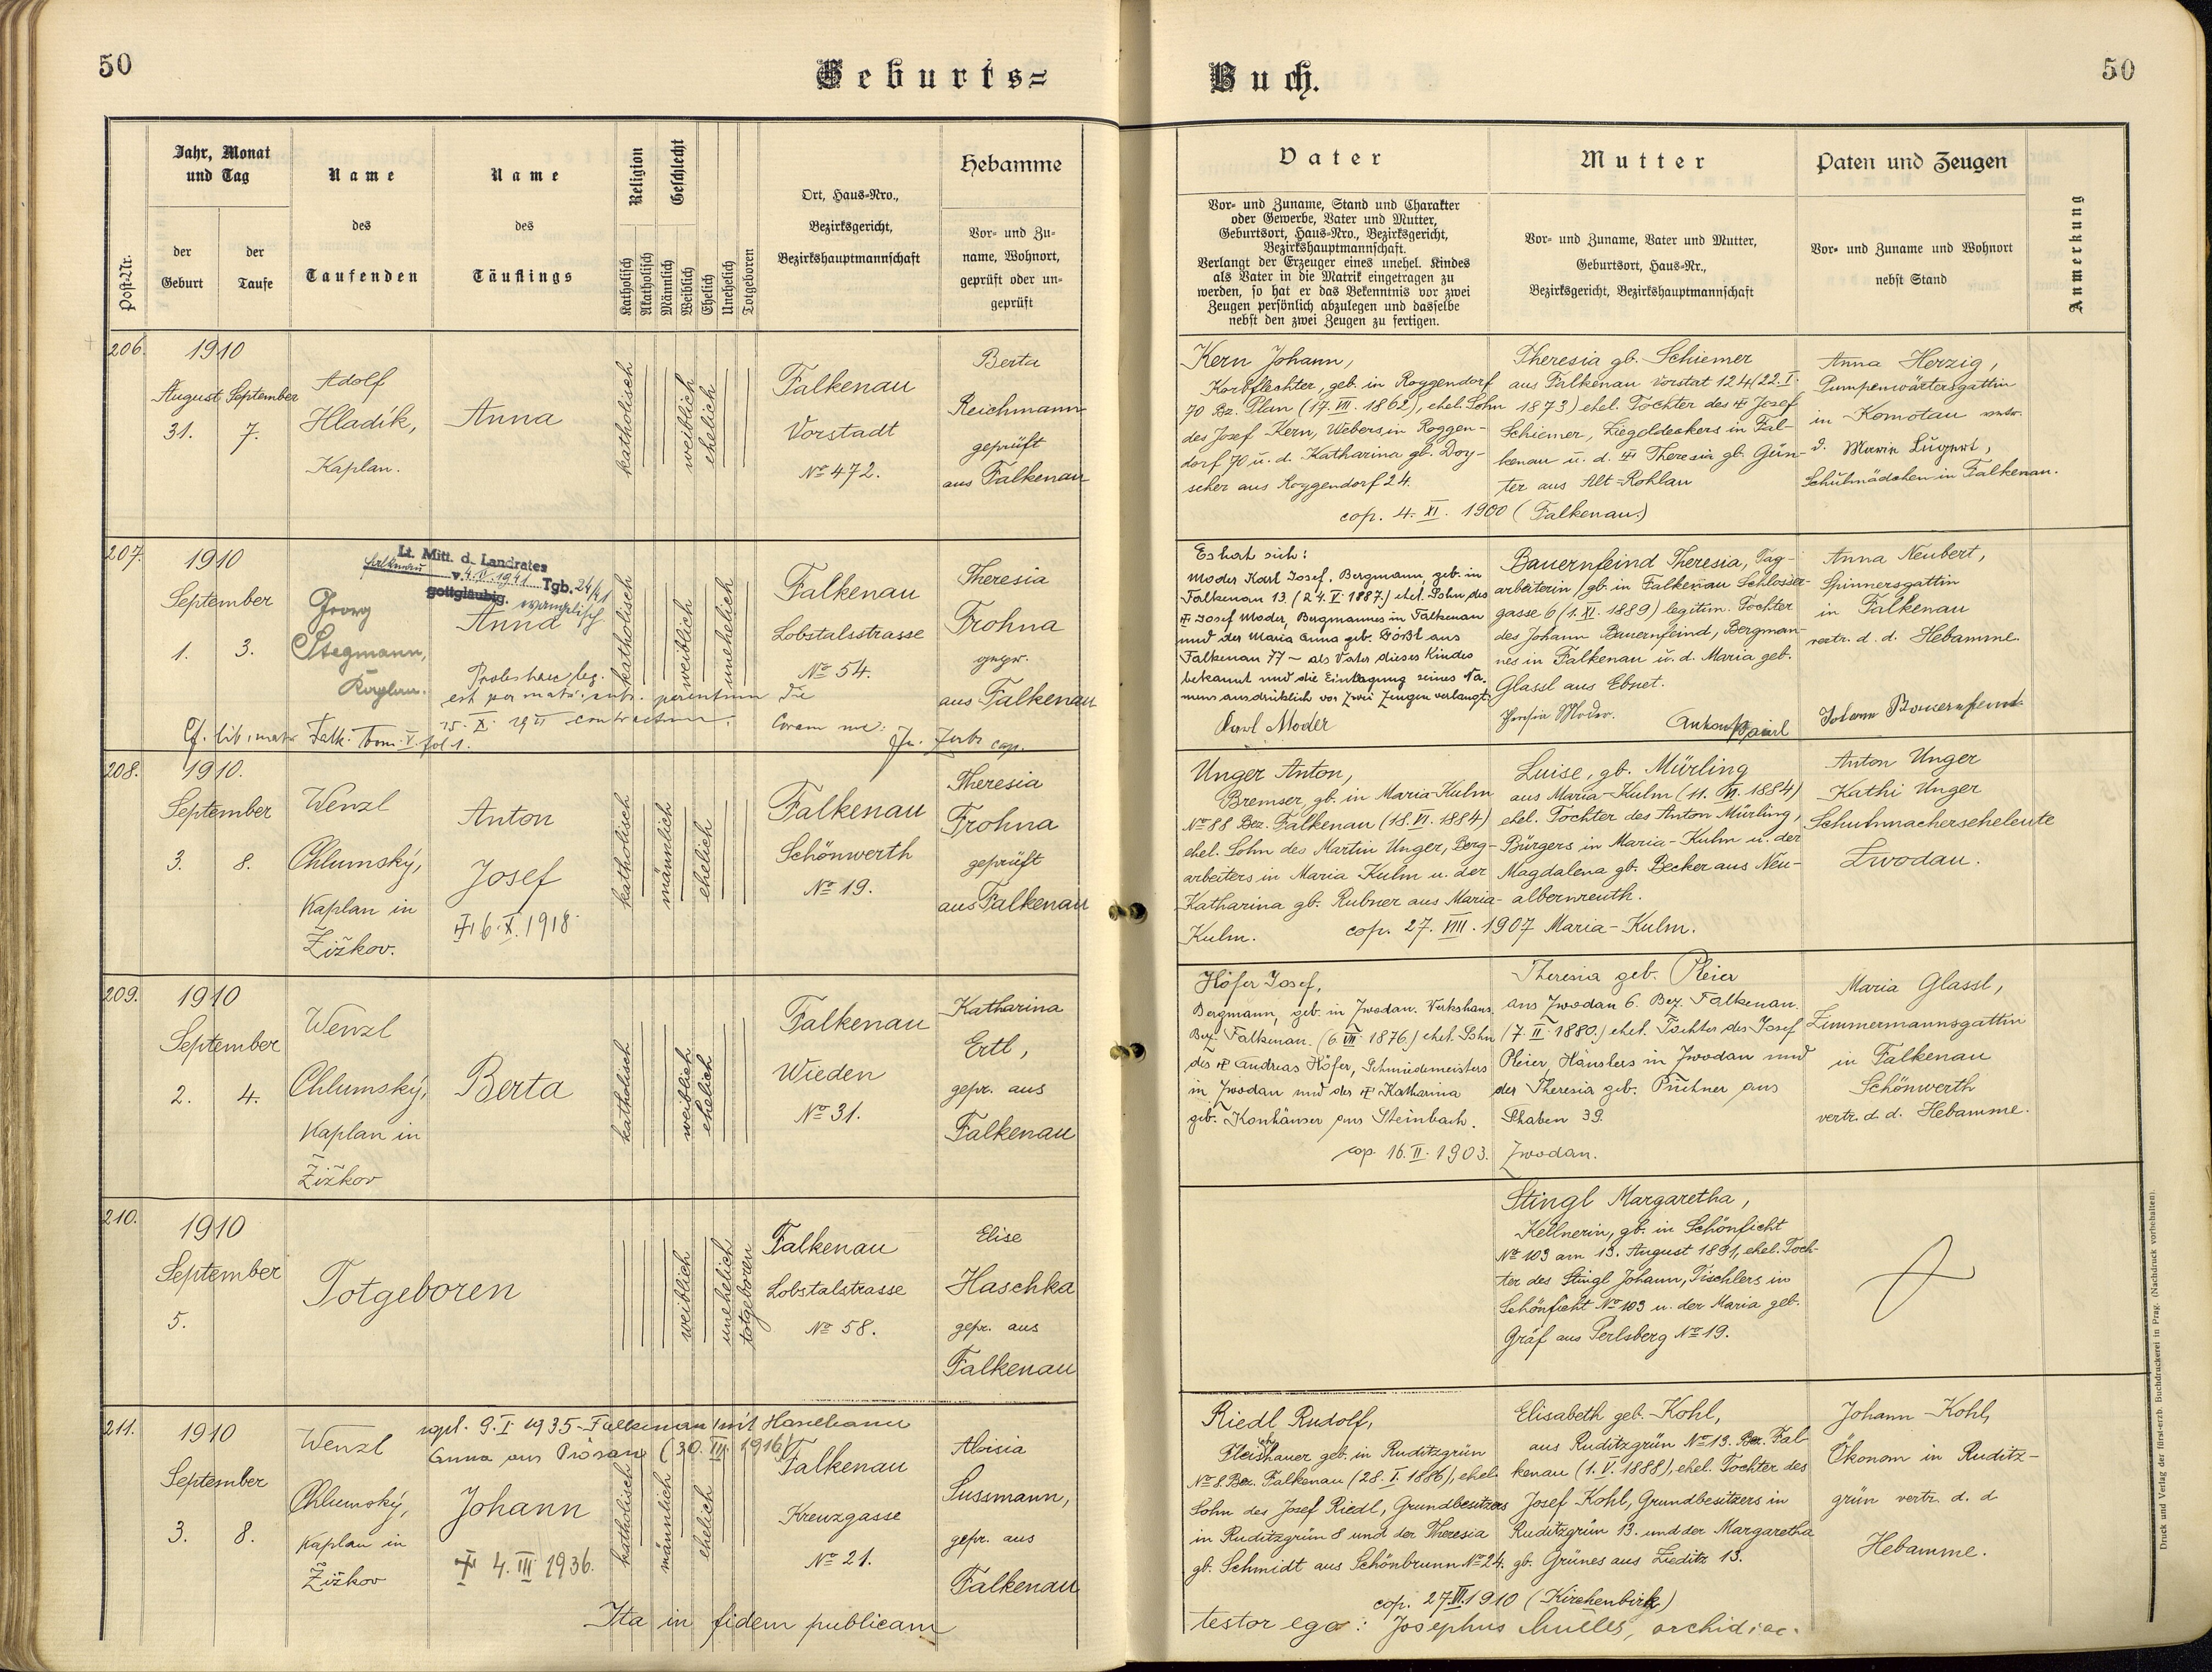 50
Geburts=
Buch.
50
Post-Nr.
Jahr, Monat
und Tag
der
Geburt
der
Taufe
Name
des
Taufenden
Name
des
Täuflings
Religion
Geschlecht
Katholisch
Akatholisch
Männlich
Weiblich
Ehelich
Unehelich
Totgeboren
Ort, Haus-Nro.,
Bezirksgericht,
Bezirkshauptmannschaft
Hebamme
Vor- und Zu-
name, Wohnort,
geprüft oder un-
geprüft
Vater
Vor- und Zuname, Stand und Charakter
oder Gewerbe, Vater und Mutter,
Geburtsort, Haus-Nro., Bezirksgericht,
Bezirkshauptmannschaft.
Verlangt der Erzeuger eines unehel. Kindes
als Vater in die Matrik eingetragen zu
werden, so hat er das Bekenntnis vor zwei
Zeugen persönlich abzulegen und dasselbe
nebst den zwei Zeugen zu fertigen.
Mutter
Vor- und Zuname, Vater und Mutter,
Geburtsort, Haus-Nr.,
Bezirksgericht, Bezirkshauptmannschaft
Paten und Zeugen
Vor- und Zuname und Wohnort
nebst Stand
Anmerkung
206.
1910
August September
31. 7.
Adolf
Hladík,
Kaplan.
Anna
katholisch
weiblich
ehelich
Falkenau
Vorstadt
No 472.
Berta
Reichmann
geprüft
aus Falkenau
Kern Johann,
Korbflechter, geb. in Roggendorf
70 Bz. Plan (17. VII. 1862), ehel. Sohn
des Josef Kern, Webers in Roggen-
dorf 70 u. d. Katharina gb. Doy-
scher aus Roggendorf 24.
Theresia gb. Schiemer
aus Falkenau Vorstat 124 (22. I.
1873) ehel. Tochter des + Josef
Schiemer, Ziegeldeckers in Fal-
kenau u. d. + Theresia gb. Gün-
ter aus Alt-Rohlau
cop. 4. XI. 1900 (Falkenau.)
Anna Herzig,
Pumpenwärtersgattin
in Komotau vertr.
d. Maria Lugert,
Schulmädchen in Falkenau.
207.
1910
September
1. 3.
Georg
Stegmann,
Kaplan.
Lt. Mitt. d. Landrates
Falkenau v. 4.IV.1941 Tgb. 24/41
gottgläubig.
Anna
Proles haec leg.
est per matr. subs. parentum die
15. X. 1911 contractum.
Cf. lib. matr. Falk. Tom. V. fol 1.
katholisch
weiblich
unehelich
Falkenau
Lobstalsstrasse
No 54.
Coram me:
Theresia
Frohna
gepr.
aus Falkenau
Es hat sich:
Moder Karl Josef, Bergmann, geb. in
Falkenau 13. (24. V. 1887.) ehel. Sohn des
+ Josef Moder, Bergmannes in Falkenau
und der Maria Anna geb. Gößl aus
Falkenau 77 – als Vater dieses Kindes
bekannt und die Eintragung seines Na-
mens ausdrücklich vor zwei Zeugen verlangt.
Karl Moder
Bauernfeind Theresia, Tag-
arbeiterin (gb. in Falkenau Schlosser-
gasse 6 (1. XI. 1889) legitim. Tochter
des Johann Bauernfeind, Bergman-
nes in Falkenau u. d. Maria geb.
Glassl aus Ebnet.
Theresia Moder.
Anna Neubert,
Spinnersgattin
in Falkenau
vertr. d. d. Hebamme.
Johann Bauernfeind
208.
1910.
September
3. 8.
Wenzl
Chlumský,
Kaplan in
Žižkov.
Anton
Josef
+ 16. X. 1918
katholisch
männlich
ehelich
Falkenau
Schönwerth
No 19.
Theresia
Frohna
geprüft
aus Falkenau
Unger Anton,
Bremser, gb. in Maria-Kulm
No 88 Bez. Falkenau (18. VI. 1884)
ehel. Sohn des Martin Unger, Berg-
arbeiters in Maria Kulm u. der
Katharina gb. Rubner aus Maria-
Kulm.
Luise, gb. Mürling
aus Maria-Kulm (11. VI. 1884)
ehel. Tochter des Anton Mürling,
Bürgers in Maria-Kulm u. der
Magdalena gb. Becker aus Neu-
albernreuth.
cop. 27. VIII. 1907 Maria-Kulm.
Anton Unger
Kathi Unger
Schuhmacherseheleute
Zwodau.
209.
1910
September
2. 4.
Wenzl
Chlumský,
Kaplan in
Žižkov
Berta
katholisch
weiblich
ehelich
Falkenau
Wieden
No 31.
Katharina
Ertl,
gepr. aus
Falkenau
Höfer Josef,
Bergmann, geb. in Zwodau. Werkshaus.
Bez. Falkenau. (6. VIII. 1876.) ehel. Sohn
des + Andreas Höfer, Schmiedemeisters
in Zwodau und der + Katharina
geb. Konhäuser aus Steinbach.
Theresia geb. Pleier
aus Zwodau 6. Bez. Falkenau.
(7. II. 1880.) ehel. Tochter des Josef
Pleier, Häuslers in Zwodau und
der Theresia geb. Püchner aus
Schaben 39.
cop. 16. II. 1903. Zwodau.
Maria Glassl,
Zimmermannsgattin
in Falkenau
Schönwerth
vertr. d. d. Hebamme.
210.
1910
September
5.
Totgeboren
weiblich
unehelich
totgeboren
Falkenau
Lobstalstrasse
No 58.
Elise
Haschka
gepr. aus
Falkenau
Stingl Margaretha,
Kellnerin, gb. in Schönficht
No 103 am 13. August 1891, ehel. Toch-
ter des Stingl Johann, Tischlers in
Schönficht No 103 u. der Maria geb.
Gräf aus Perlsberg No 19.
211.
1910
September
3. 8.
Wenzl
Chlumský,
Kaplan in
Žižkov
copl. 9. I. 1935 Falkenau mit
Anna aus (30. III. 1916)
Johann
+ 4. III. 1936.
katholisch
männlich
ehelich
Falkenau
Kreuzgasse
No 21.
Aloisia
Sussmann,
gepr. aus
Falkenau
Riedl Rudolf,
Fleischhauer geb. in Ruditzgrün
No 8. Bez. Falkenau (28. I. 1886), ehel.
Sohn des Josef Riedl, Grundbesitzers
in Ruditzgrün 8 und der Theresia
gb. Schmidt aus Schönbrunn No 24.
Elisabeth geb. Kohl,
aus Ruditzgrün No 13. Bez. Fal-
kenau (1. V. 1888), ehel. Tochter des
Josef Kohl, Grundbesitzers in
Ruditzgrün 13. und der Margaretha
gb. Grünes aus Zieditz 13.
cop. 27. VI. 1910 (Kirchenbirk)
Johann Kohl,
Ökonom in Ruditz-
grün vertr. d. d
Hebamme.
Ita in fidem publicam
testor ego: Josephus archidiac.
Druck und Verlag der fürst-erzb. Buchdruckerei in Prag. (Nachdruck vorbehalten).